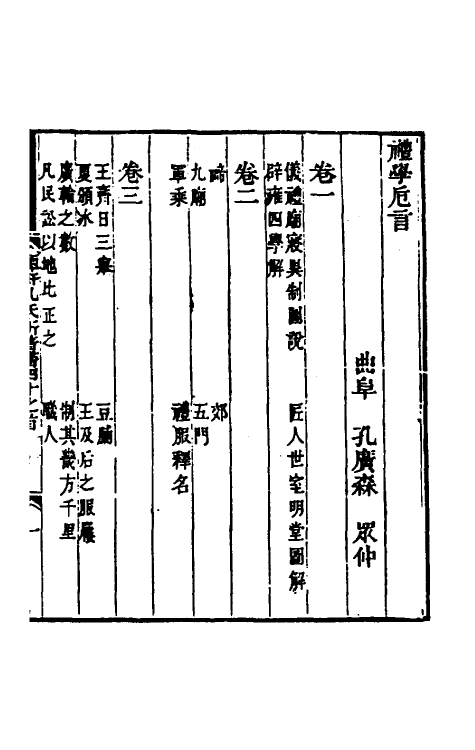 禮學卮言
曲阜 孔廣森 眾仲
卷一
儀禮廟寢異制圖說 匠人世室明堂圖解
辟雍四學解
卷二
禘 郊
九廟 五門
軍乘 禮服釋名
卷三
王齊日三舉 豆脯
夏頒冰 王及后之服屨
廣輪之數 制其畿方千里
凡民訟以地比正之 職人